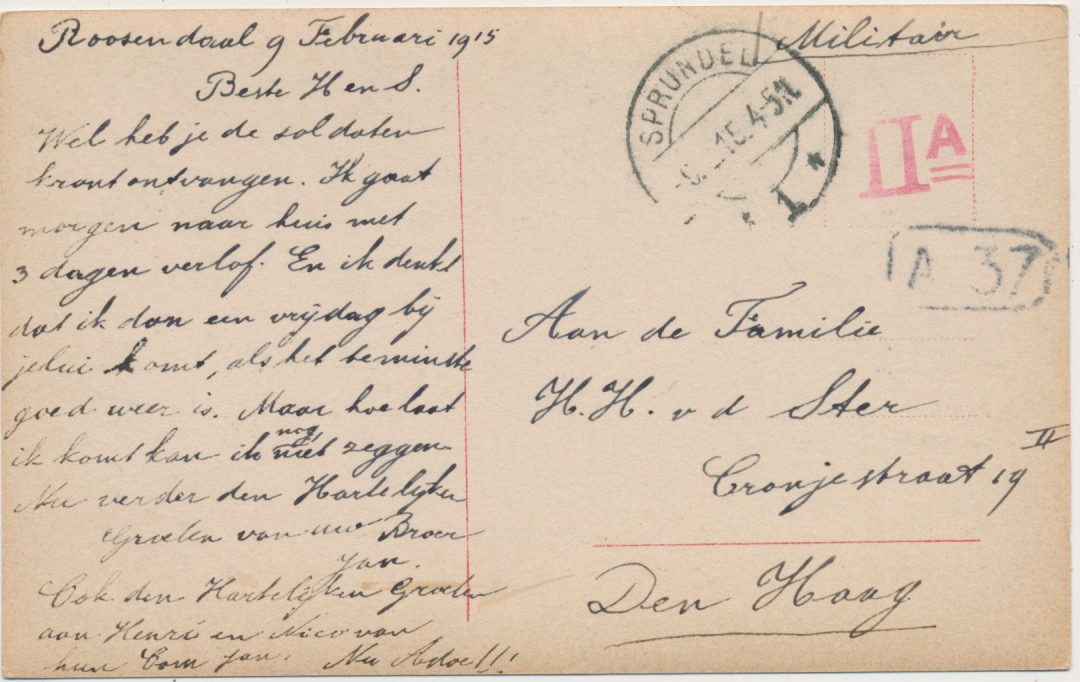 Roosendaal 9 Februari 1915
Beste H en S.
Wel heb je de soldaten
krant ontvangen. Ik gaat
morgen naar huis met
3 dagen verlof. En ik denkt
dat ik dan een vrijdag bij
jelui komt, als het teminste
goed weer is. Maar hoe laat
ik komt kan ik nog niet zeggen
Nu verder den Hartelijken
Groeten van uw Broer
Jan.
Ook den Hartelijken Groeten
aan Henri en Nico van
hun Oom Jan. Nu Adoe!!!
Militair
SPRUNDEL
15.4-5N
1
IIA
A 37
Aan de Familie
H. H. v d Ster
Cronjestraat 19 II
Den Haag